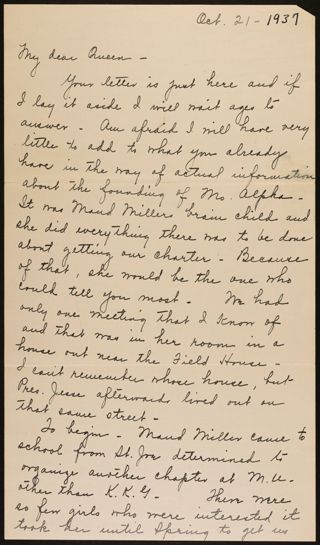 Oct. 21 - 1937
My dear Queen -
Your letter is just here and if
I lay it aside I will wait ages to
answer - Am afraid I will have very
little to add to what you already
have in the way of actual information
about the founding of Mo. Alpha -
It was Maud Miller's brain child and
she did everything there was to be done
about getting our charter - Because
of that, she would be the one who
could tell you most - We had
only one meeting that I know of
and that was in her room in a
house out near the Field House -
I can't remember whose house, but
Pres. Jesse afterwards lived out on
that same street -
To begin - Maud Miller came to
school from St. Joe determined to
organize another chapter at M.U.
other than K.K.G. There were
so few girls who were interested it
took her until Spring to get us